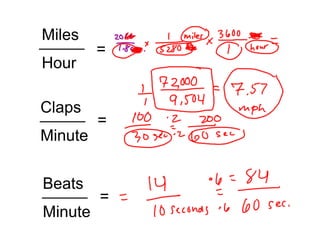 Miles
Hour
=
20
1.8
×
1 miles
5280
×
3600
1 hour
=
1
1
72,000
9,504
= 7.57
mph
Claps
Minute
=
100
30 sec
·2
·2
=
200
60 sec
Beats
Minute
= =
14
10 seconds
·6
·6
=
=
84
60 sec.